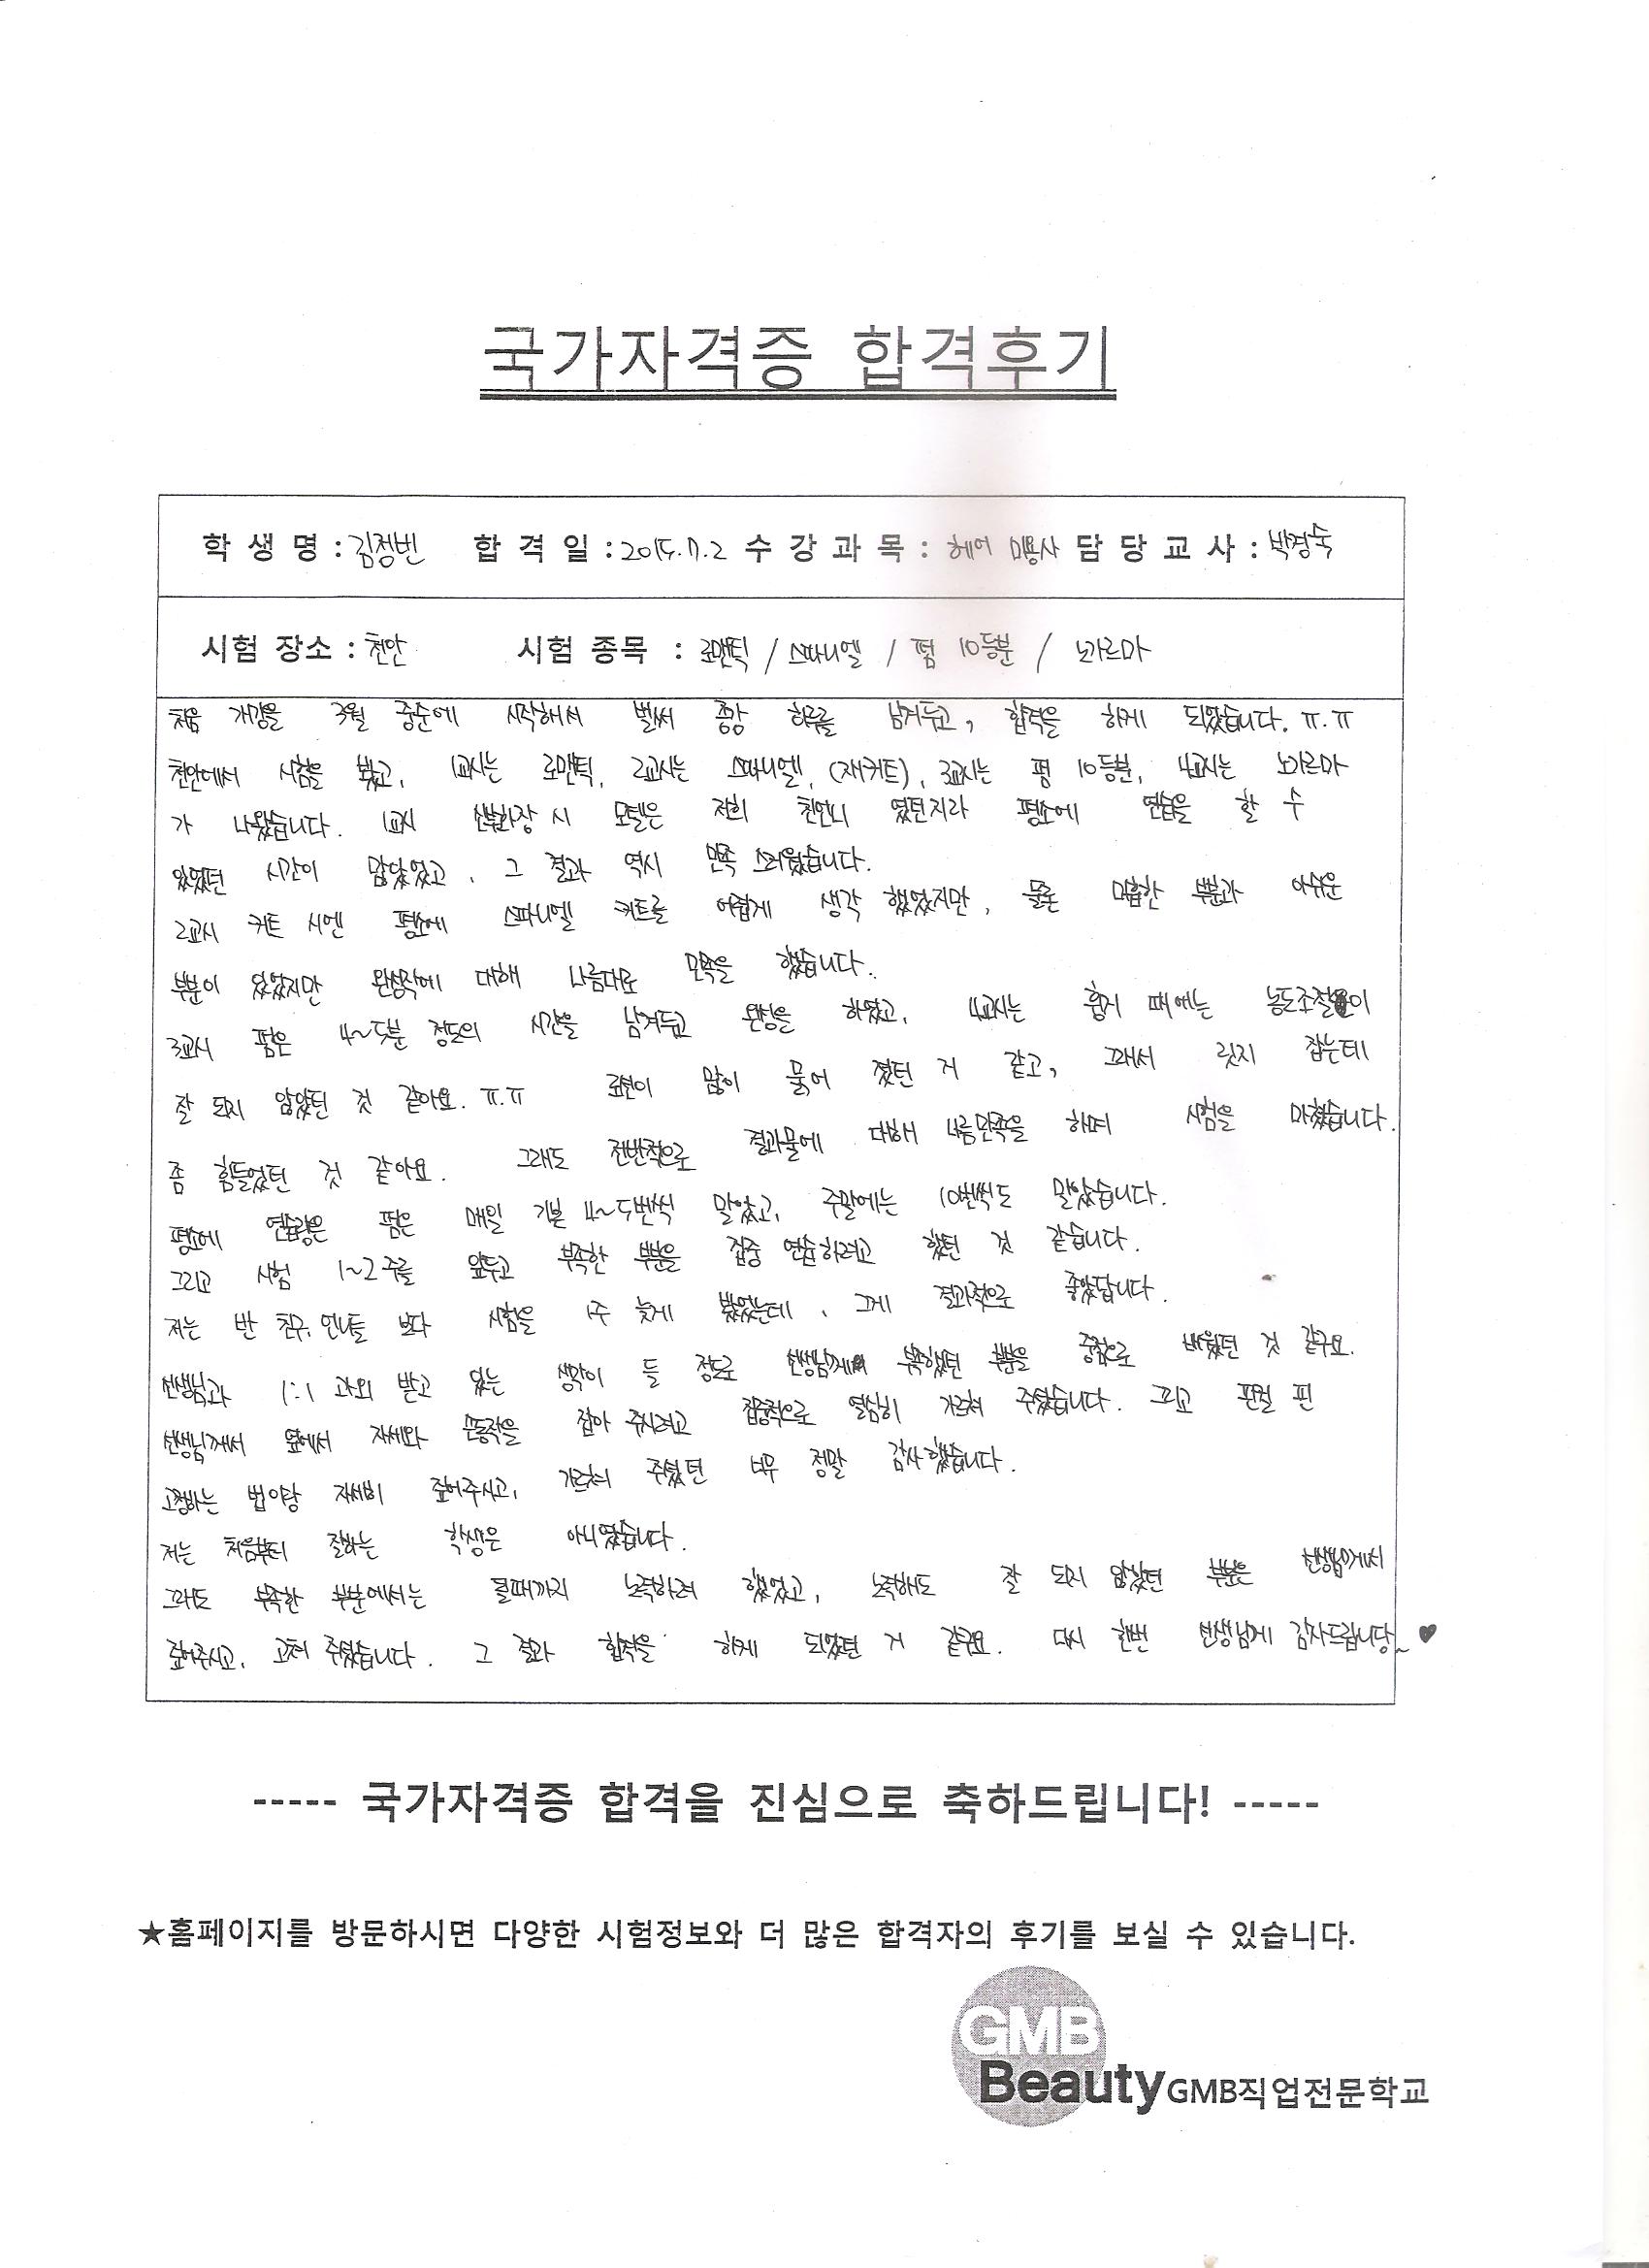 국가자격증 합격후기
학 생 명 : 김정빈 합 격 일 : 2015.7.2 수 강 과 목 : 헤어 미용사 담 당 교 사 : 박정숙
시험 장소 : 천안 시험 종목 : 로맨틱 / 스파니엘 / 펌 10등분 / 노가르마
처음 개강을 3월 중순에 시작해서 벌써 종강 하루를 남겨두고, 합격을 하게 되었습니다. ㅠ.ㅠ
천안에서 시험을 봤고, 1교시는 로맨틱, 2교시는 스파니엘, (재커트), 3교시는 펌 10등분, 4교시는 노가르마
가 나왔습니다. 1교시 신부화장 시 모델은 저희 친언니 였던지라 평소에 연습을 할 수
있었던 시간이 많았었고, 그 결과 역시 만족 스러웠습니다.
2교시 커트 시엔 평소에 스파니엘 커트를 어렵게 생각 했었지만, 물론 미흡한 부분과 아쉬운
부분이 있었지만 완성작에 대해 나름대로 만족을 했습니다.
3교시 펌은 4~5분 정도의 시간을 남겨두고 완성을 하였고, 4교시는 핑거 때에는 농도조절이
잘 되지 않았던 것 같아요. ㅠ.ㅠ 로션이 많이 묽어 졌던 거 같고, 그래서 릿지 잡는데
좀 힘들었던 것 같아요. 그래도 전반적으로 결과물에 대해 나름만족을 하며 시험을 마쳤습니다.
평소에 연습량은 펌은 매일 기본 4~5번씩 말았고, 주말에는 10번씩도 말았습니다.
그리고 시험 1~2주를 앞두고 부족한 부분을 집중 연습하려고 했던 것 같습니다.
저는 반 친구, 언니들 보다 시험을 1주 늦게 봤었는데, 그게 결과적으로 좋았답니다.
선생님과 1:1 과외 받고 있는 생각이 들 정도로 선생님께 부족했던 부분을 중점으로 배웠던 것 같구요.
선생님께서 옆에서 자세와 손동작을 잡아 주시려고 집중적으로 열심히 가르쳐 주셨습니다. 그리고 핀컬 핀
고정하는 법이랑 자세히 짚어주시고, 가르쳐 주셨던 너무 정말 감사했습니다.
저는 처음부터 잘하는 학생은 아니였습니다.
그래도 부족한 부분에서는 될때까지 노력하려 했었고, 노력해도 잘 되지 않았던 부분은 선생님께서
짚어주시고, 고쳐 주셨습니다. 그 결과 합격을 하게 되었던 거 같구요. 다시 한번 선생님께 감사드립니당~ ♥
----- 국가자격증 합격을 진심으로 축하드립니다! -----
★홈페이지를 방문하시면 다양한 시험정보와 더 많은 합격자의 후기를 보실 수 있습니다.
GMB
Beauty GMB직업전문학교